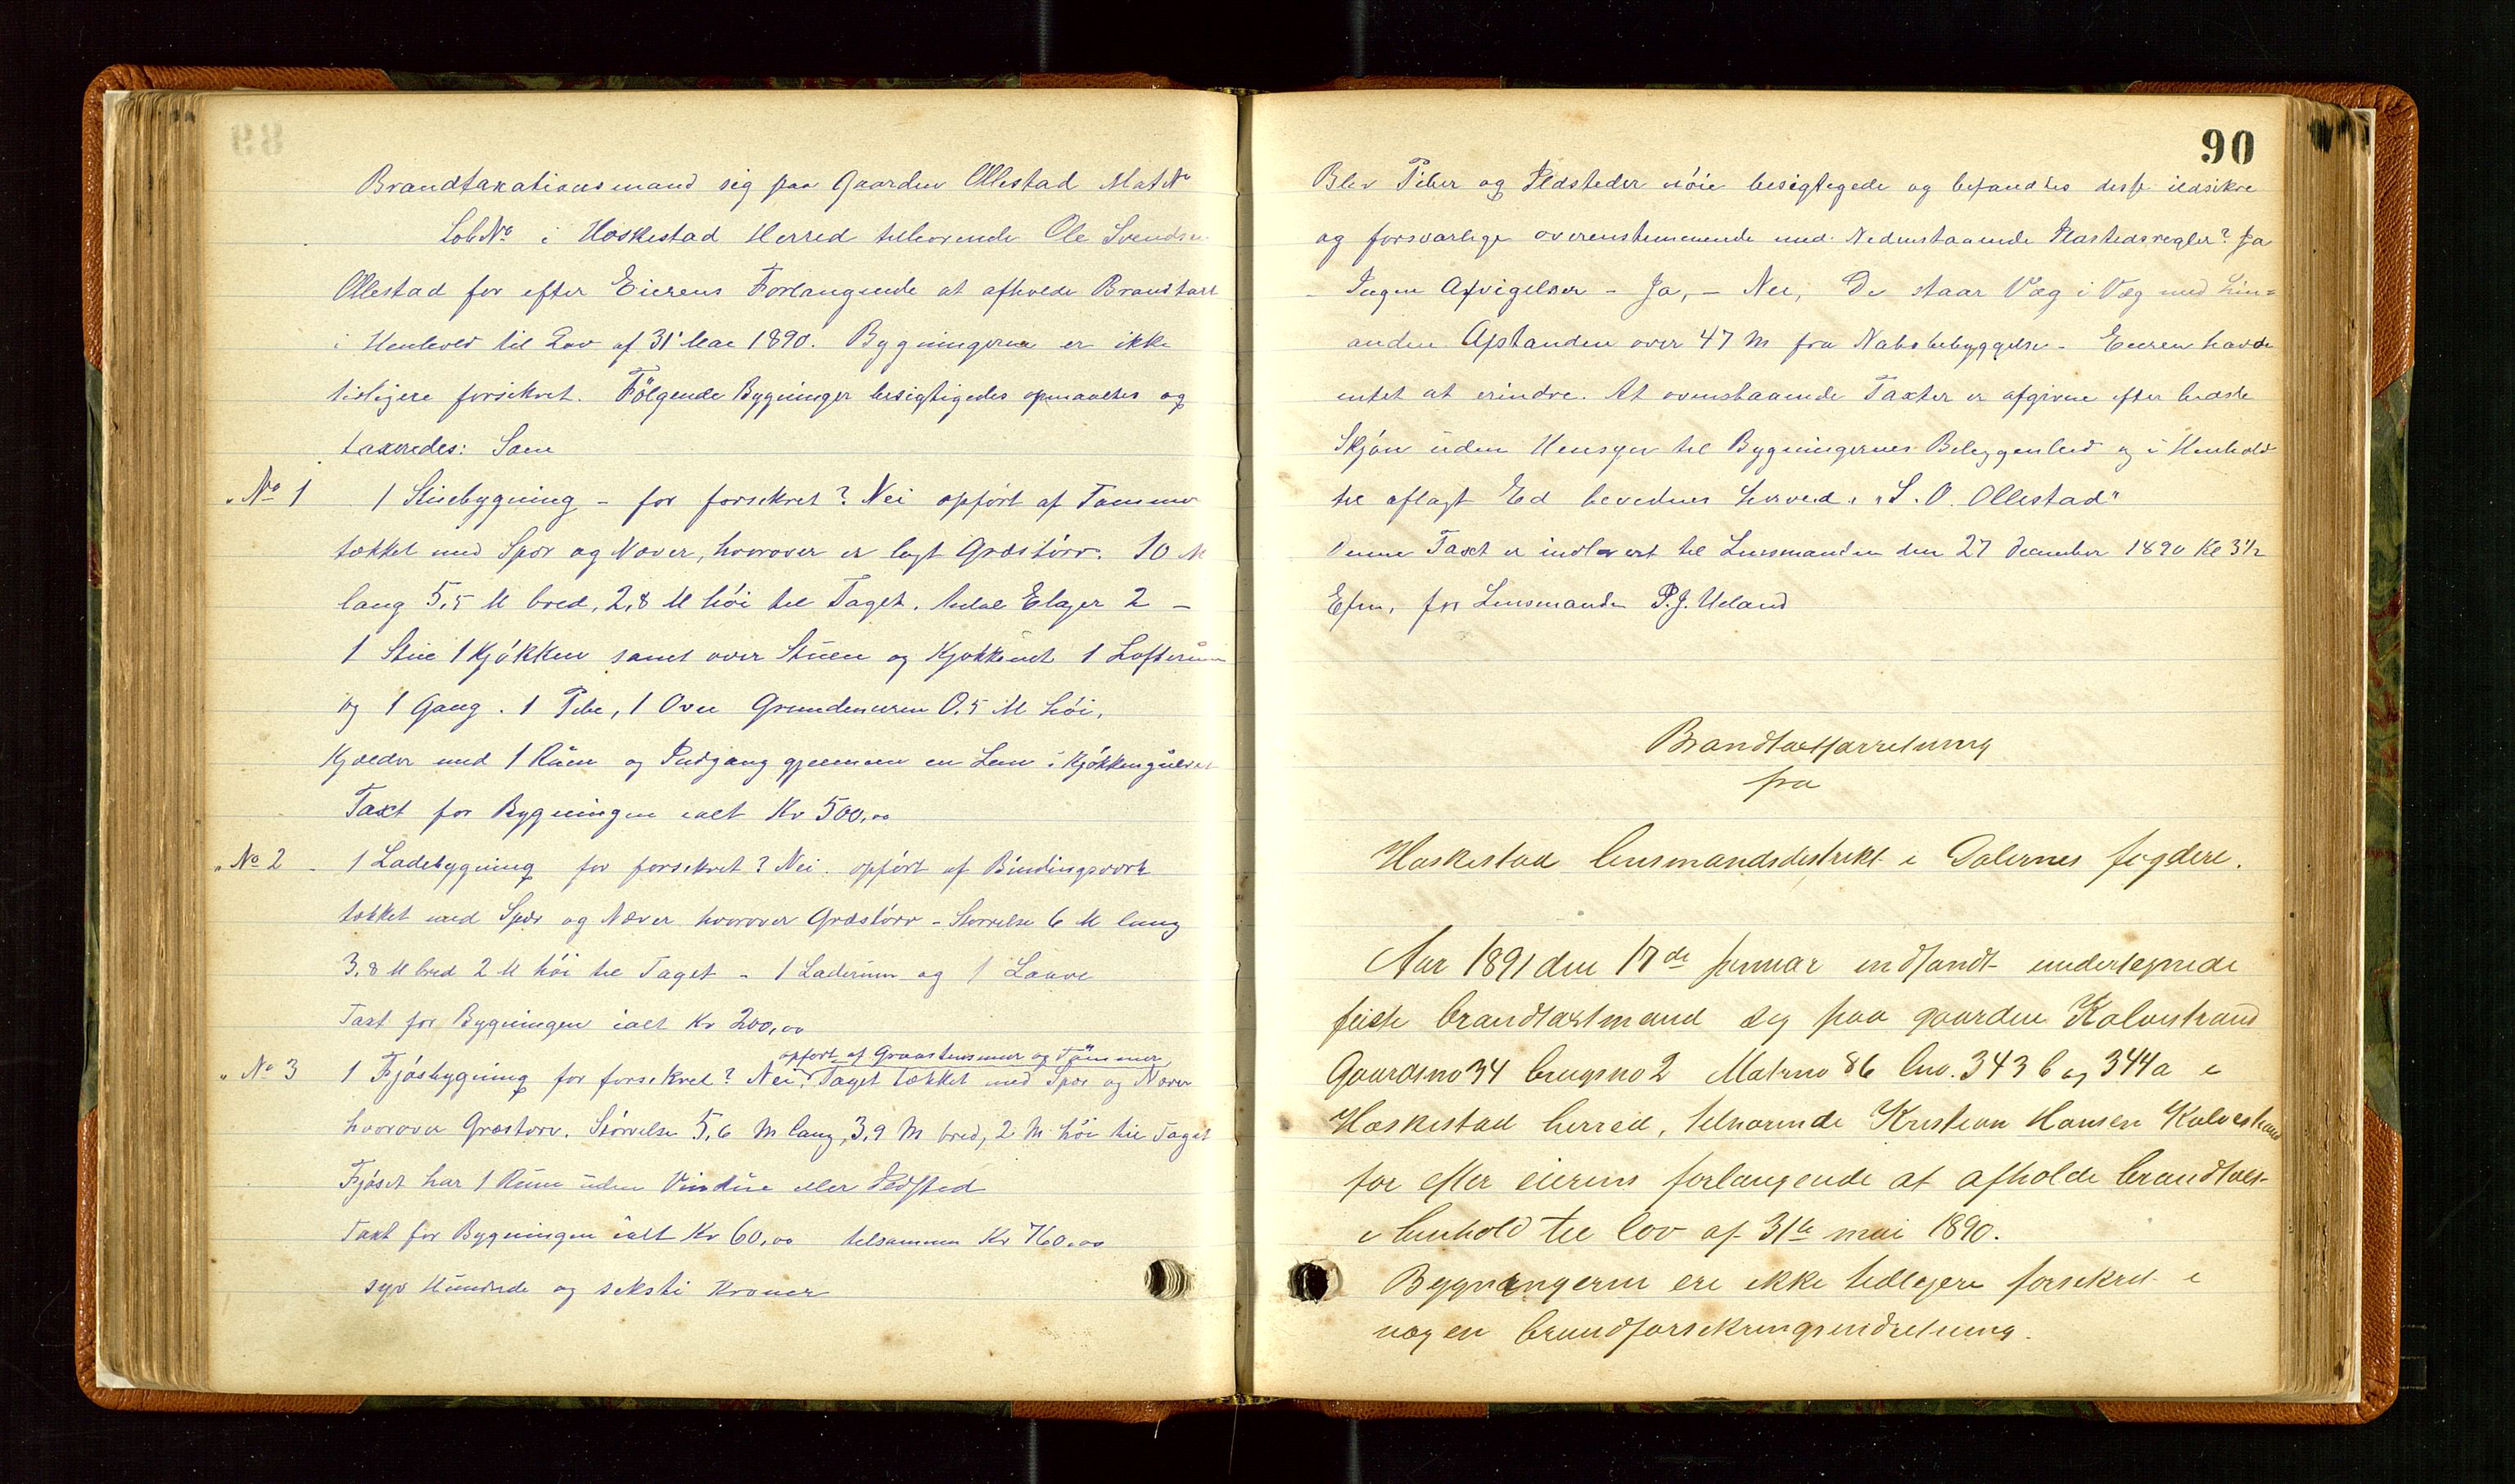 Brandtaxationsmand sig paa Gaarden Ollestad Mat №
Lob № i Heskestad Herred tilhørende Ole Svendsen
Ollestad for efter Eierens Forlangende at afholde Brandtaxt
i Henhold til Lov af 31' Mai 1890. Bygningerne er ikke
tidligere forsikret. Følgende Bygninger besigtigedes opmaaltes og
taxeredes: Som
„ № 1 1 Stuebygning – før forsikret? Nei opført af Tømmer
tækket med Spør og Næver, hvorover er lagt Græstørv. 10 M
lang 5,5 M bred, 2,8 M høi til Taget. Antal Etager 2 –
1 Stue 1 Kjøkken samt over Stuen og Kjøkkenet 1 Lofterum
og 1 Gang. 1 Pibe, 1 Ovn Grundmuren 0,5 M høi,
Kjælder med 1 Rum og Indgang gjennem en Lem i Kjøkkengulvet
Taxt for Bygningen ialt Kr 500,00
„ № 2 . 1 Ladebygning før forsikret? Nei. opført af Bindingsverk
tækket med Spør og Næver hvorover Græstørv – Størrelse 6 M lang
3,8 M bred 2 M høi til Taget – 1 Laderum og 1 Laave
Taxt for Bygningen ialt Kr 200,00
opført af Graastensmur og Tømmer,
„ № 3 1 Fjøsbygning før forsikret? Nei, Taget tækket med Spør og Næver
hvorover Græstørv. Størrelse 5,6 M lang, 3,9 M bred, 2 M høi til Taget
Fjøset har 1 Rum uden Vindue eller Ildsted
Taxt for Bygningen ialt Kr 60,00 tilsammen Kr 760,00
syv Hundrede og seksti Kroner
90
Blev Piber og Ildsteder nøie besigtigede og befandtes disse ildsikre
og forsvarlige overensstemmende med Nedenstaaende Ildstedsregler? Ja
– Ingen Afvigelser – Ja, – Nei, De staar Væg i Væg med hin=
anden Afstanden over 47 M fra Nabobebyggelse – Eieren havde
intet at erindre. At ovenstaaende Taxter er afgivne efter bedste
Skjøn uden Hensyn til Bygningernes Beliggenhed og i Henhold
til aflagt Ed bevidnes herved. „S. O. Ollestad"
Denne Taxt er indlevert til Lensmanden den 27 December 1890 Kl 3½
Efm. for Lensmanden P. J. Ueland
Brandtaxtforretning
fra
Heskestad lensmandsdistrikt i Dalernes fogderi.
Aar 1891 den 17de januar indfandt undertegnede
feiste brandtaxtmand sig paa gaarden Kalvestrand
Gaardsno 34 brugsno 2 Matrno 86 lno. 343 b og 344a i
Heskestad herred, tilhørende Kristian Hansen Kalvestrand
for efter eierens forlangende at afholde brandtaxt
i henhold til lov af 31te mai 1890.
Bygningerne ere ikke tidligere forsikret i
nogen brandforsikringsindretning.